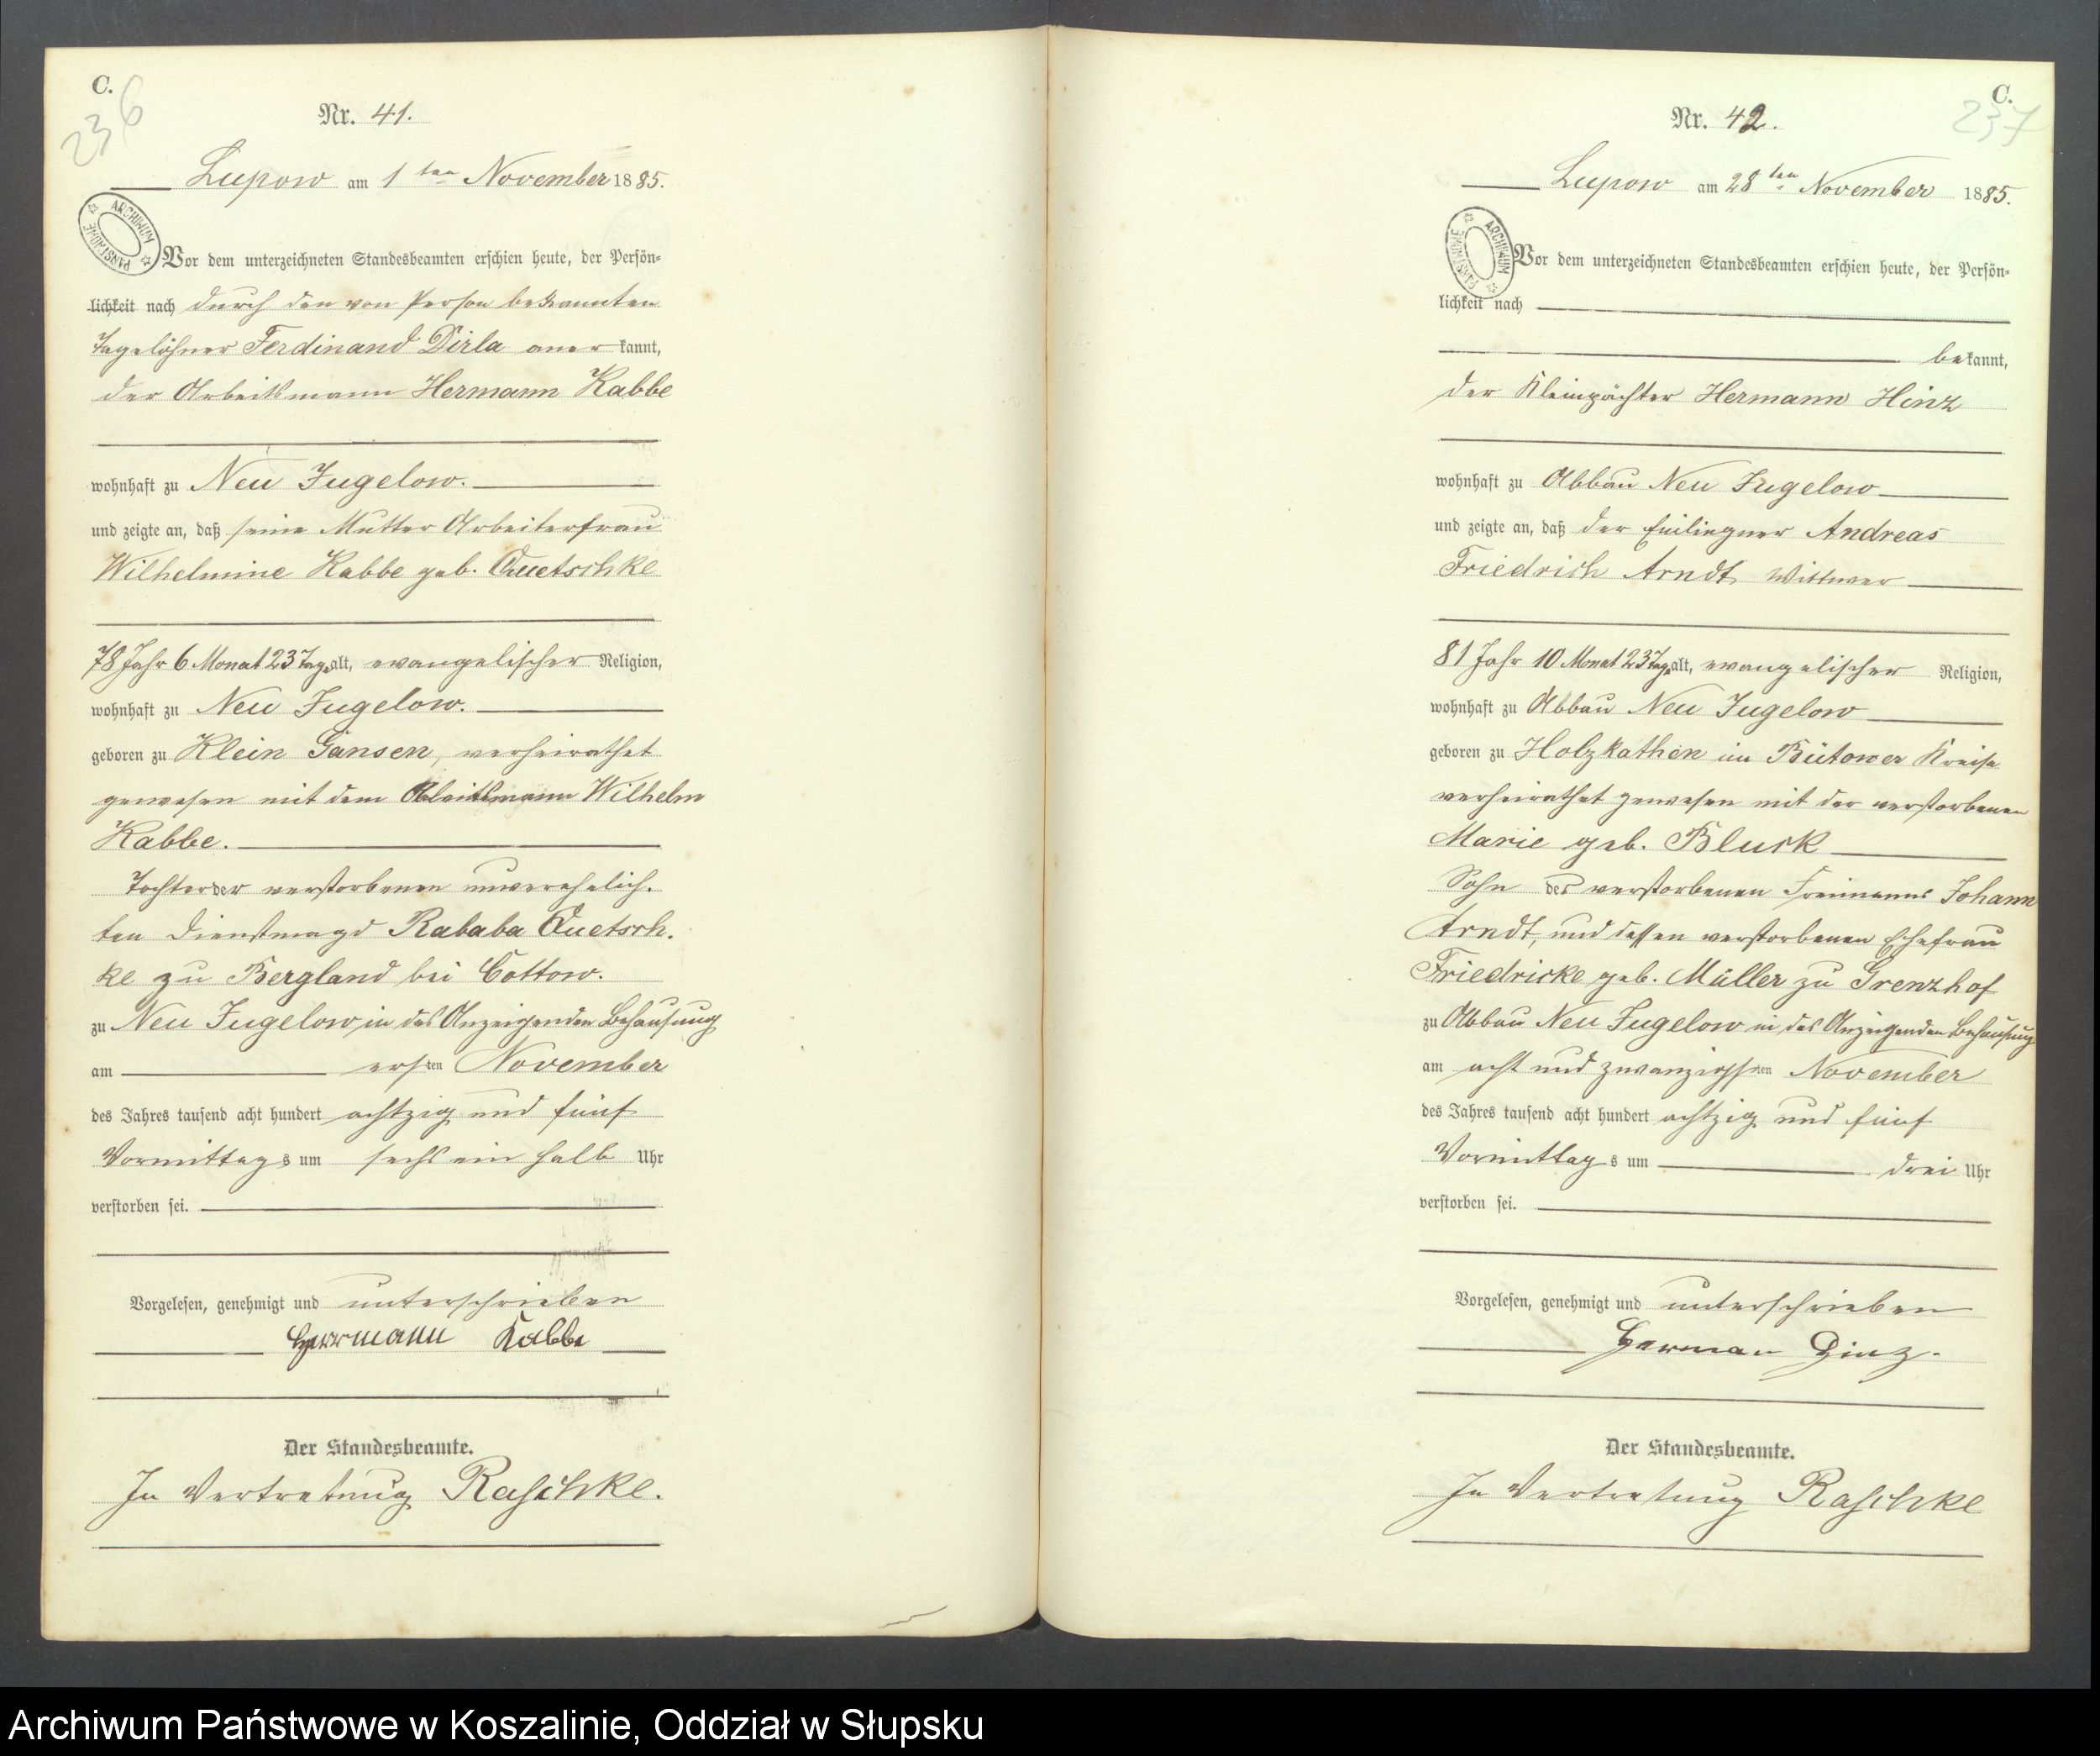 C.
236
Nr. 41.
Lupow am 1ten November 1885.
ARCHIWUM PAŃSTWOWE
Vor dem unterzeichneten Standesbeamten erschien heute, der Persön-
lichkeit nach durch den von Person bekannten
Tagelöhner Ferdinand Dirla anerkannt,
der Arbeitsmann Hermann Kabbe
wohnhaft zu Neu Jugelow.
und zeigte an, daß seine Mutter Arbeiterfrau
Wilhelmine Kabbe geb. Quetschke
78 Jahr 6 Monat 23 Tage alt, evangelischer Religion,
wohnhaft zu Neu Jugelow.
geboren zu Klein Gansen, verheirathet
gewesen mit dem Arbeitsmann Wilhelm
Kabbe.
Tochter der verstorbenen unverehelich-
ten Dienstmagd Rababa Quetsch-
ke zu Bergland bei Cottow.
zu Neu Jugelow, in des Anzeigenden Behausung
am ersten November
des Jahres tausend acht hundert achtzig und fünf
Vormittags um sechs ein halb Uhr
verstorben sei.
Vorgelesen, genehmigt und unterschrieben
Herrmann Kabbe
Der Standesbeamte.
In Vertretung Raschke.
C.
237
Nr. 42.
Lupow am 28ten November 1885.
ARCHIWUM PAŃSTWOWE
Vor dem unterzeichneten Standesbeamten erschien heute, der Persön-
lichkeit nach
bekannt,
der Kleinpächter Hermann Hinz
wohnhaft zu Abbau Neu Jugelow
und zeigte an, daß der Einliegner Andreas
Friedrich Arndt, Wittwer
81 Jahr 10 Monat 23 Tage alt, evangelischer Religion,
wohnhaft zu Abbau Neu Jugelow
geboren zu Holzkathen im Bütower Kreise
verheirathet gewesen mit der verstorbenen
Marie geb. Bluck
Sohn des verstorbenen Freimanns Johann
Arndt, und dessen verstorbenen Ehefrau
Friedricke geb. Müller zu Grenzhof
zu Abbau Neu Jugelow in des Anzeigenden Behausung
am acht und zwanzigsten November
des Jahres tausend acht hundert achtzig und fünf
Vormittags um drei Uhr
verstorben sei.
Vorgelesen, genehmigt und unterschrieben
Herman Hinz.
Der Standesbeamte.
In Vertretung Raschke
Archiwum Państwowe w Koszalinie, Oddział w Słupsku